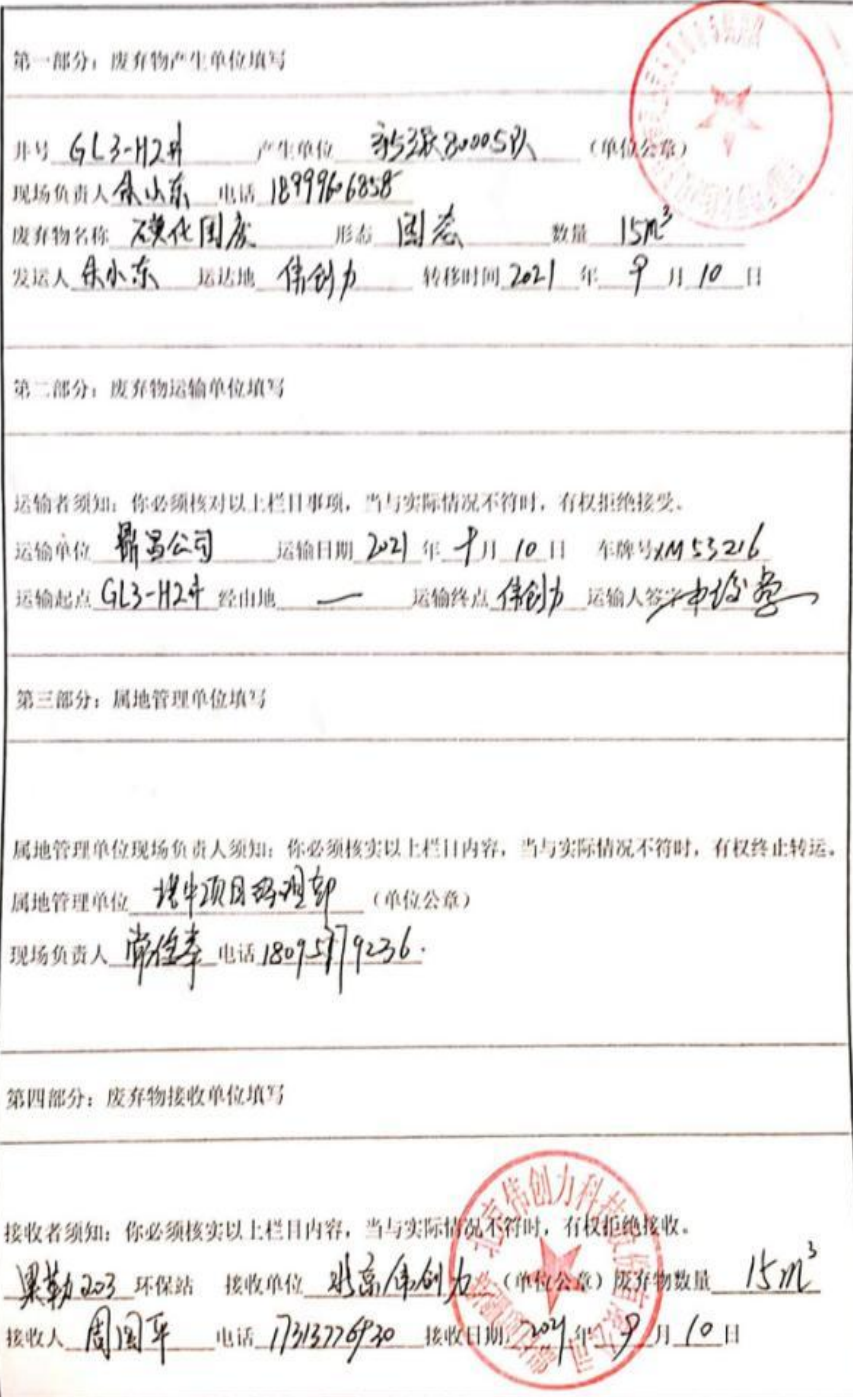 第一部分：废弃物产生单位填写
井号 GL3-H2井 产生单位 80005队 （单位公章）
现场负责人 朱小东 电话 18999606858
废弃物名称 磺化固废 形态 固态 数量 15m³
发运人 朱小东 运达地 伟创力 转移时间 2021 年 9 月 10 日
第二部分：废弃物运输单位填写
运输者须知：你必须核对以上栏目事项，当与实际情况不符时，有权拒绝接受。
运输单位 鼎昌公司 运输日期 2021 年 9 月 10 日 车牌号 XM53216
运输起点 GL3-H2井 经由地 — 运输终点 伟创力 运输人签字
第三部分：属地管理单位填写
属地管理单位现场负责人须知：你必须核实以上栏目内容，当与实际情况不符时，有权终止转运。
属地管理单位 塔中项目经理部 （单位公章）
现场负责人 电话 18095779236.
第四部分：废弃物接收单位填写
北京伟创力科技股份有限公司
接收者须知：你必须核实以上栏目内容，当与实际情况不符时，有权拒绝接收。
果勒203 环保站 接收单位 北京伟创力 （单位公章）废弃物数量 15m³
接收人 周国平 电话 17313776930 接收日期：2021 年 9 月 10 日